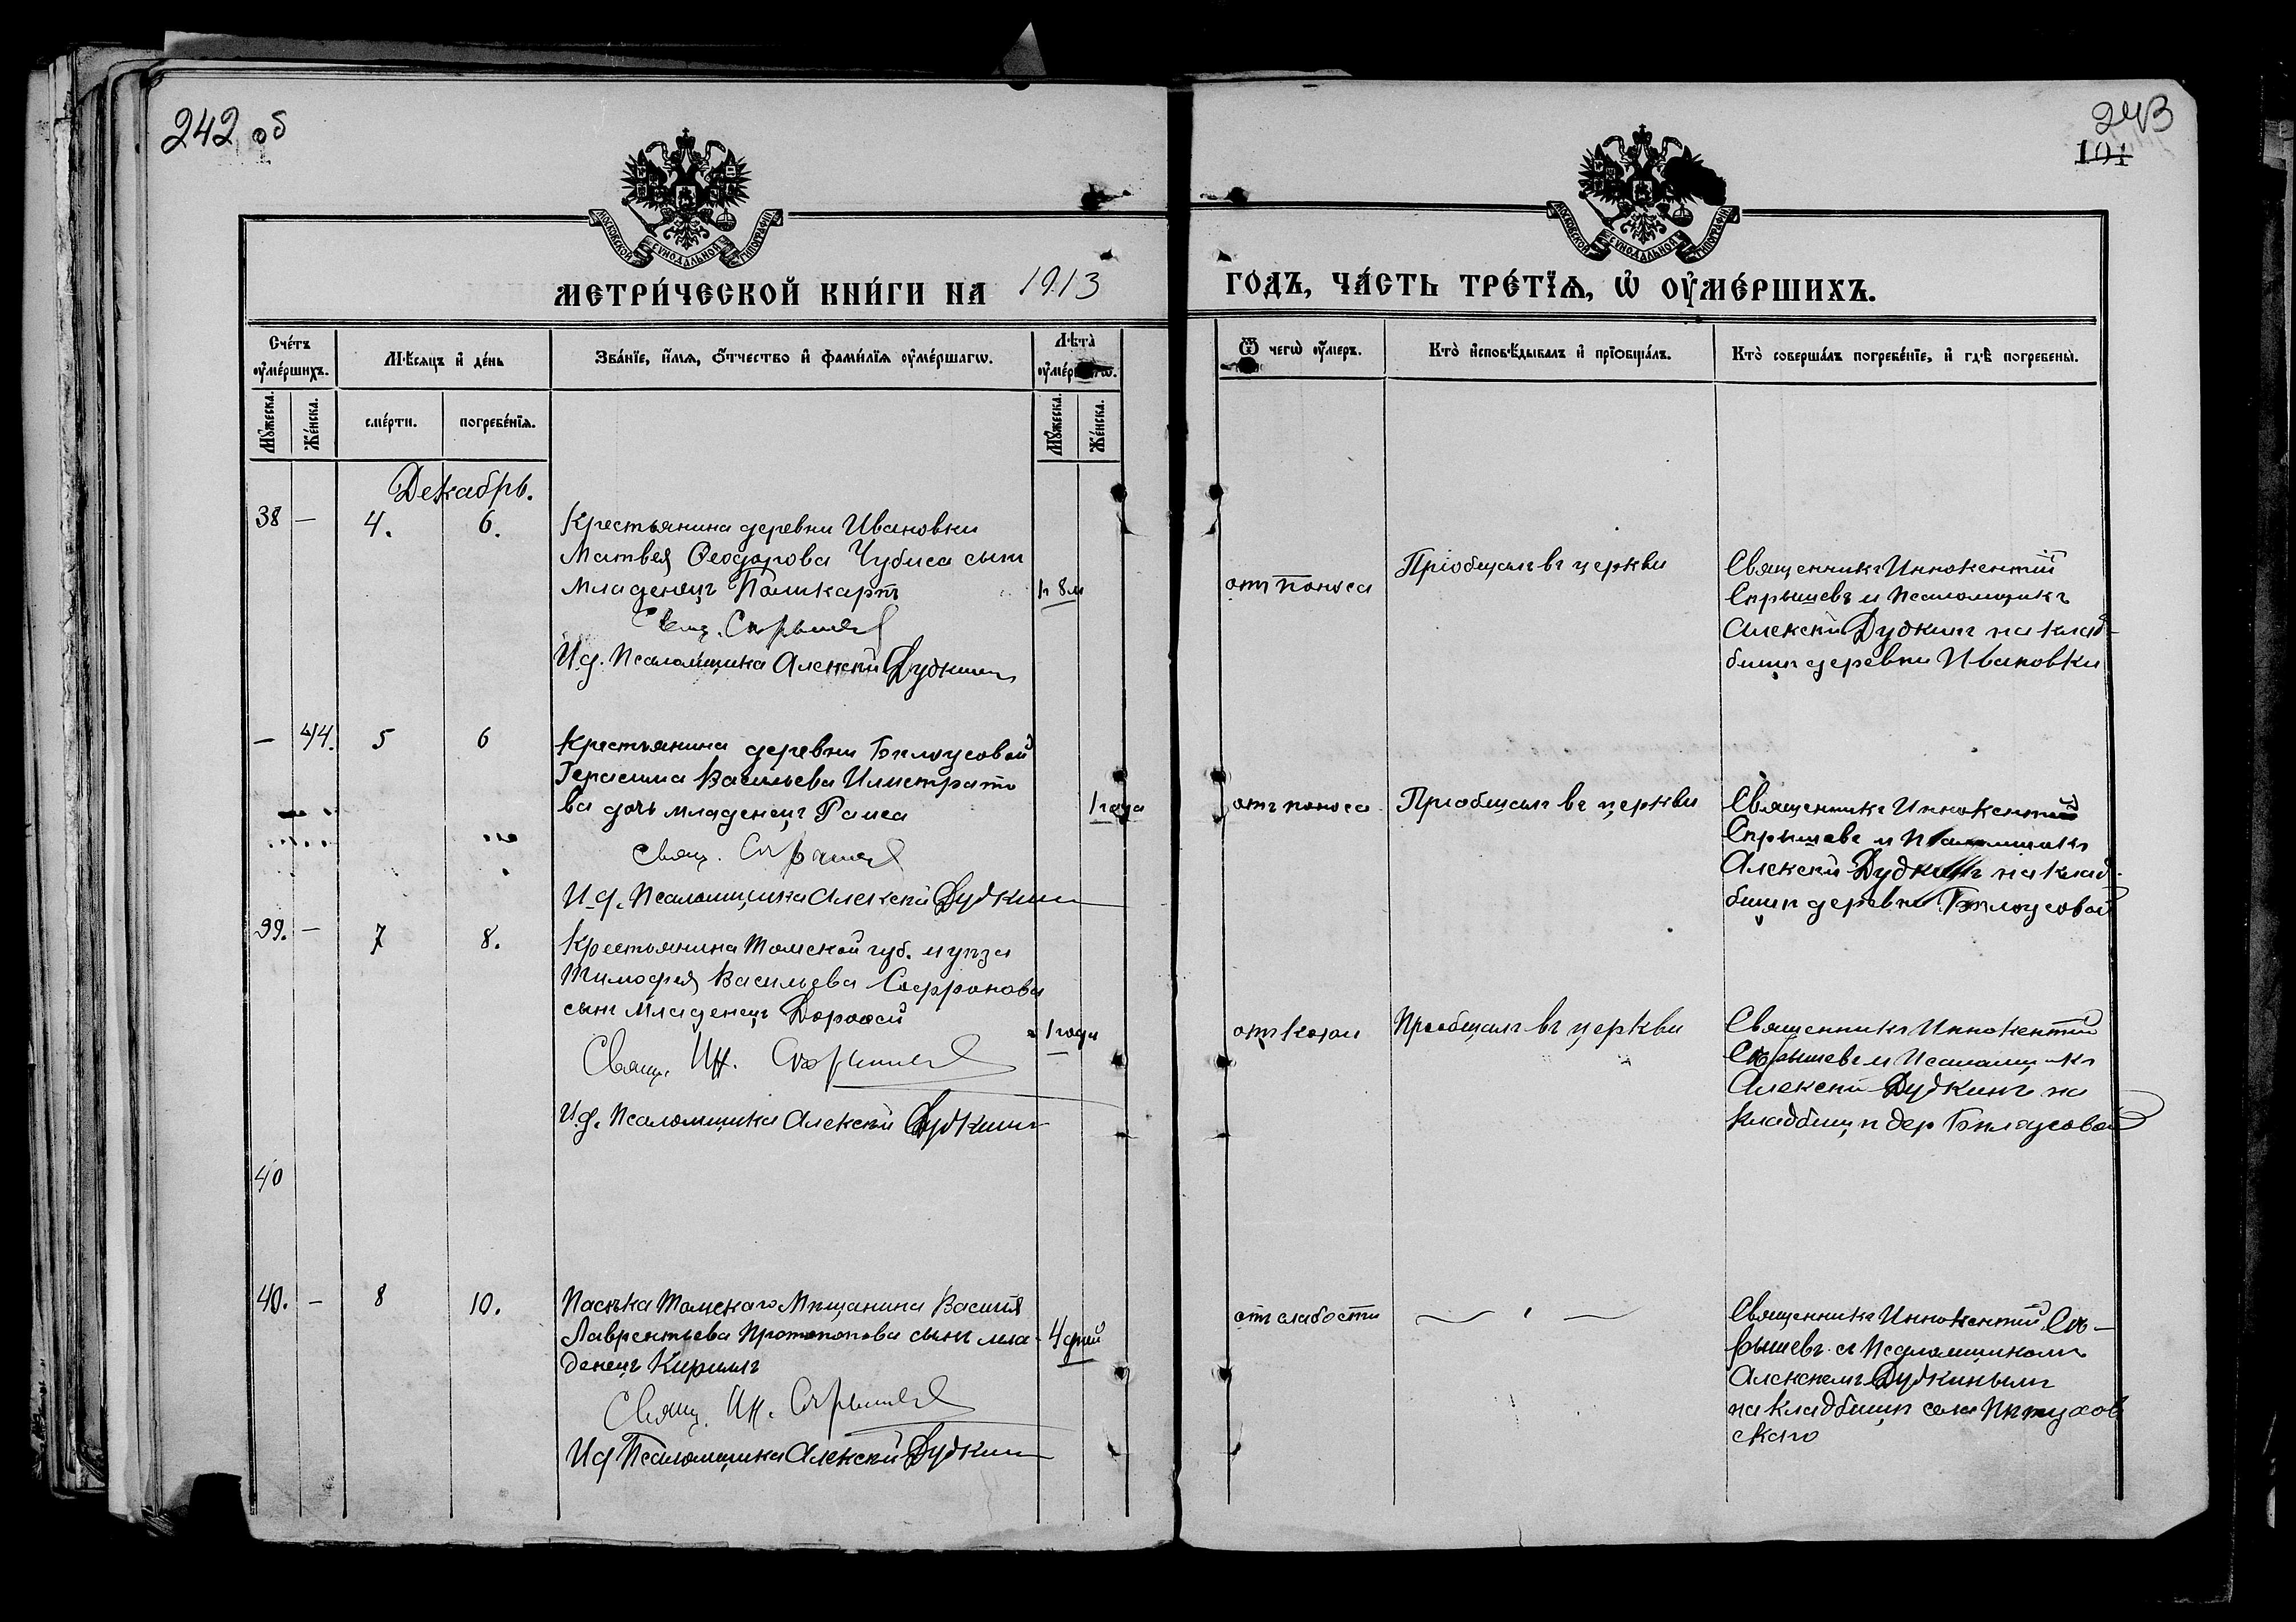 242 об
243
101
МОСКОВСКОЙ СѴНОДАЛЬНОЙ ТИПОГРАФІИ
МОСКОВСКОЙ СѴНОДАЛЬНОЙ ТИПОГРАФІИ
МЕТРИ́ЧЕСКОЙ КНИ́ГИ НА 1913
ГОДЪ, ЧА́СТЬ ТРЕ́ТЇѦ, Ѡ҆ ОУ҆МЕ́РШИХЪ.
Сче́тъ оу҆ме́ршихъ.
Мѣ́сяцъ и҆ де́нь
Зва́нїе, и҆́мѧ, ѻ҆́тчество и҆ фами́лїѧ оу҆ме́ршагѡ.
Лѣ́та
Ѿ чегѡ̀ оу҆́меръ.
Кто̀ и҆сповѣ́дывалъ и҆ прїѡбща́лъ.
Кто̀ соверша́лъ погребе́нїе, и҆ гдѣ̀ погребены̀.
Мꙋ́жеска.
Же́нска.
сме́рти.
погребе́нїѧ.
Мꙋ́жеска.
Же́нска.
Декабрь.
38 — 4. 6.
Крестьянина деревни Ивановки
Матвея Ѳеодорова Чубиса сынъ
младенецъ Поликарпъ
8 м
Свящ. Скрышевъ
И.д. Псаломщика Алексѣй Дудкинъ
отъ поноса
Пріобщалъ въ церкви
Священникъ Иннокентій
Скрышевъ и Псаломщикъ
Алексѣй Дудкинъ на клад-
бищѣ деревни Ивановки
— 44. 5 6
Крестьянина деревни Бѣлоусовой
Герасима Васильева
ва дочь младенецъ Раиса
1 года
Свящ. Скрышевъ
И.д. Псаломщика Алексѣй Дудкинъ
отъ поноса
Пріобщалъ въ церкви
Священникъ Иннокентій
Скрышевъ и Псаломщикъ
Алексѣй Дудкинъ на клад-
бищѣ деревни Бѣлоусовой
39. — 7 8.
Крестьянина Томской губ. и уѣзда
Тимофея Васильева Сафронова
сынъ младенецъ Дороѳей
1 года
Свящ. Ин. Скрышевъ
И.д. Псаломщика Алексѣй Дудкинъ
отъ кори
Пріобщалъ въ церкви
Священникъ Иннокентій
Скрышевъ и Псаломщикъ
Алексѣй Дудкинъ на
кладбищѣ дер Бѣлоусовой
40
40. — 8 10.
Пасѣка Томскаго Мѣщанина Василія
Лаврентьева Протопопова сынъ мла-
денецъ Кириллъ
4 дней
Свящ. Ин. Скрышевъ
И д Псаломщика Алексѣй Дудкинъ
отъ слабости
Священникъ Иннокентій Ск-
рышевъ съ Псаломщикомъ
Алексѣемъ Дудкинымъ
на кладбищѣ села Пѣтухов
скаго